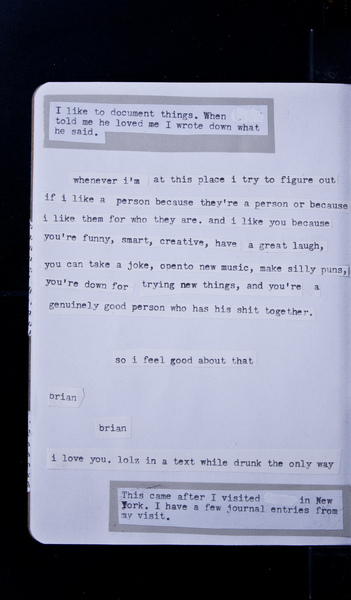 I like to document things. When
told me he loved me I wrote down what
he said.
whenever i'm at this place i try to figure out
if i like a person because they're a person or because
i like them for who they are. and i like you because
you're funny, smart, creative, have a great laugh,
you can take a joke, opento new music, make silly puns,
you're down for trying new things, and you're a
genuinely good person who has his shit together.
so i feel good about that
brian
brian
i love you. lolz in a text while drunk the only way
This came after I visited in New
York. I have a few journal entries from
my visit.